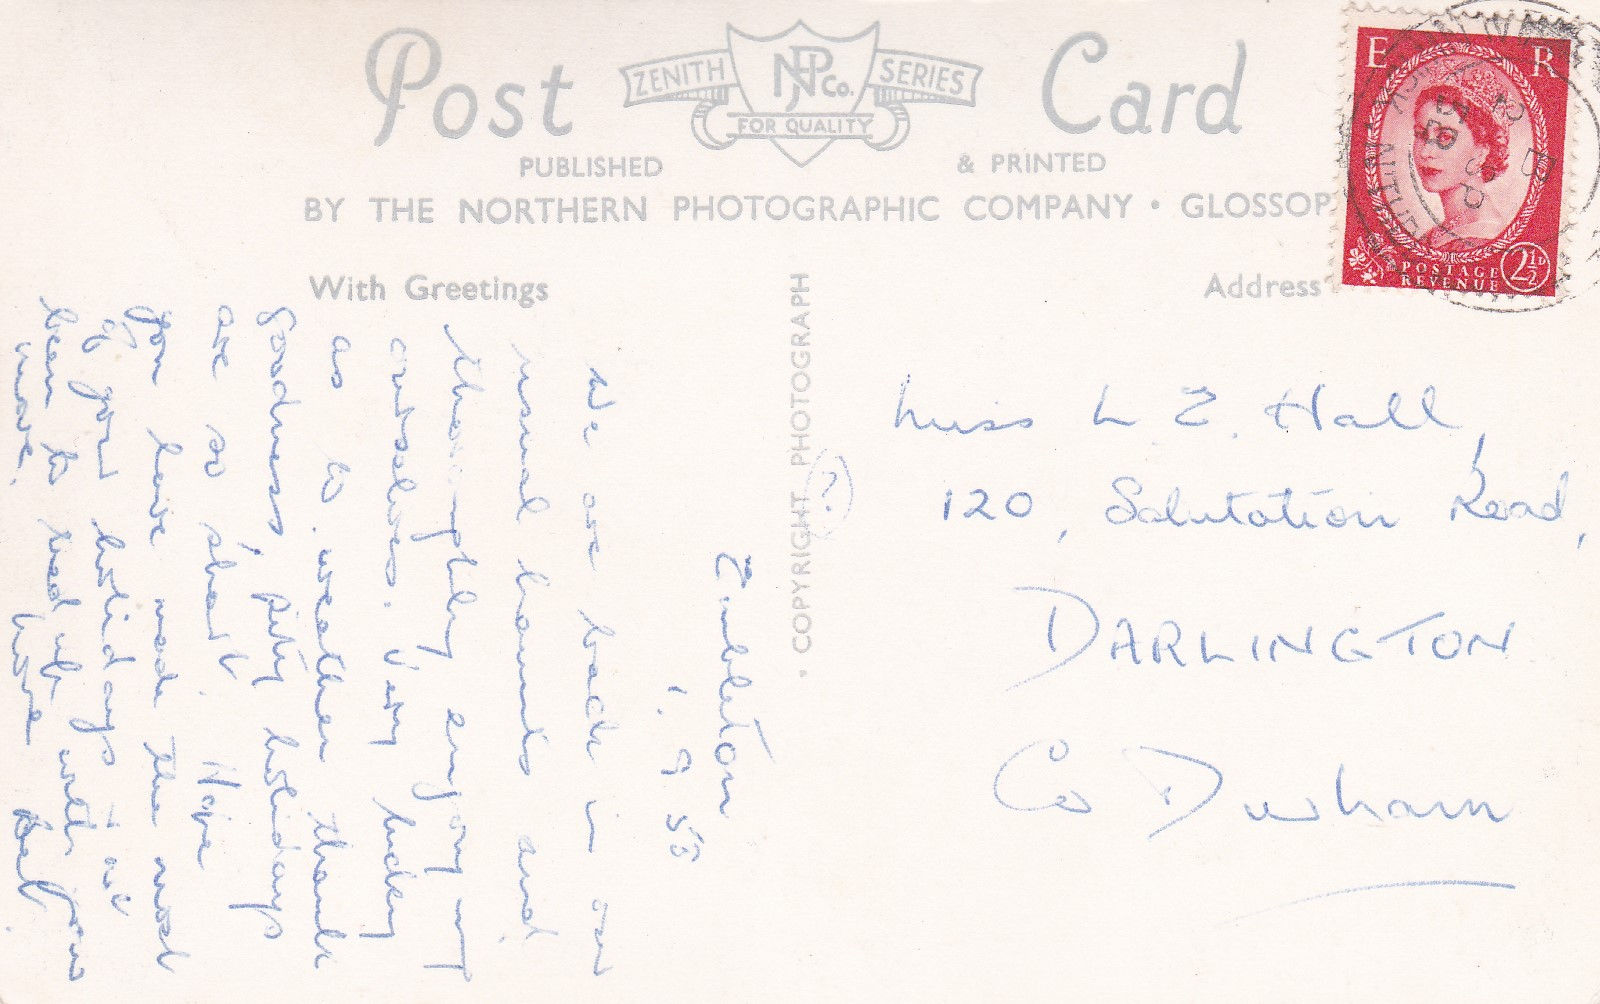 Post Card
ZENITH SERIES
NPCo.
FOR QUALITY
PUBLISHED & PRINTED
BY THE NORTHERN PHOTOGRAPHIC COMPANY · GLOSSOP
With Greetings
Address
· COPYRIGHT PHOTOGRAPH
E R
POSTAGE
REVENUE
2½D
12
SP
58
Embleton
1. 9 58
We are back in our
usual haunts and
thoroughly enjoying
ourselves. Very lucky
as to weather thank
goodness, pity holidays
are so short. Hope
you have made the most
of your holidays & not
been to tied up with your
move.
Miss L E. Hall,
120, Salutation Road,
DARLINGTON
Co Durham